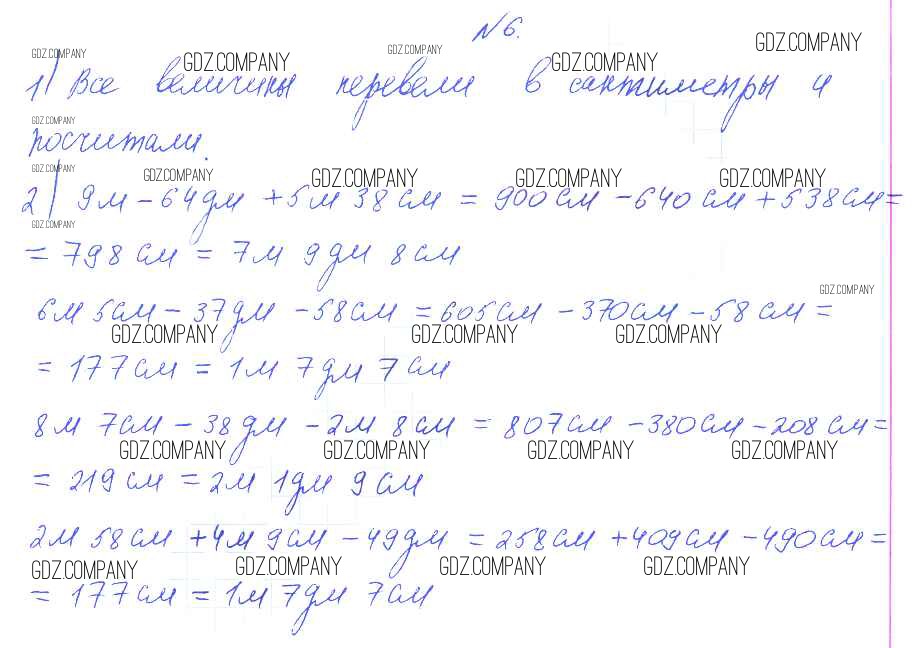 №6.
GDZ.COMPANY GDZ.COMPANY GDZ.COMPANY GDZ.COMPANY GDZ.COMPANY
1) Все величины перевели в сантиметры и
GDZ.COMPANY
посчитали.
GDZ.COMPANY GDZ.COMPANY GDZ.COMPANY GDZ.COMPANY GDZ.COMPANY
2) 9м - 64дм + 5м 38см = 900см - 640см + 538см =
GDZ.COMPANY
= 798см = 7м 9дм 8см
GDZ.COMPANY
6м 5см - 37дм - 58см = 605см - 370см - 58см =
GDZ.COMPANY GDZ.COMPANY GDZ.COMPANY
= 177см = 1м 7дм 7см
8м 7см - 38дм - 2м 8см = 807см - 380см - 208см =
GDZ.COMPANY GDZ.COMPANY GDZ.COMPANY GDZ.COMPANY
= 219см = 2м 1дм 9см
2м 58см + 4м 9см - 49дм = 258см + 409см - 490см =
GDZ.COMPANY GDZ.COMPANY GDZ.COMPANY GDZ.COMPANY
= 177см = 1м 7дм 7см